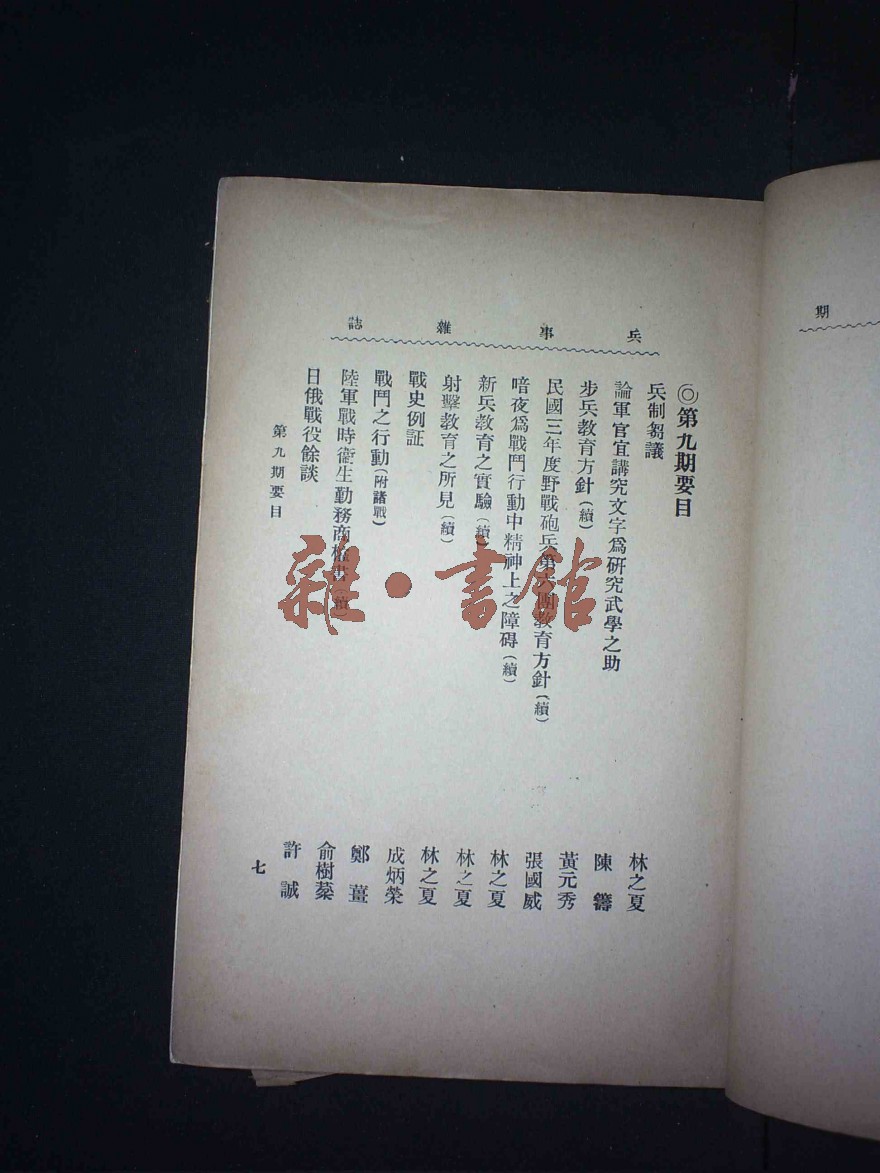 兵事雜誌
◎第九期要目
兵制芻議 林之夏
論軍官宜講究文字爲研究武學之助 陳籌
步兵教育方針(續) 黃元秀
民國三年度野戰砲兵第六團教育方針(續) 張國威
暗夜爲戰鬥行動中精神上之障碍(續) 林之夏
新兵教育之實驗(續) 林之夏
射擊教育之所見(續) 林之夏
戰史例証 成炳榮
戰鬥之行動(附諸戰) 鄭薑
陸軍戰時衛生勤務商榷書(續) 俞樹棻
日俄戰役餘談 許誠
第九期要目
七
期
雜·書館